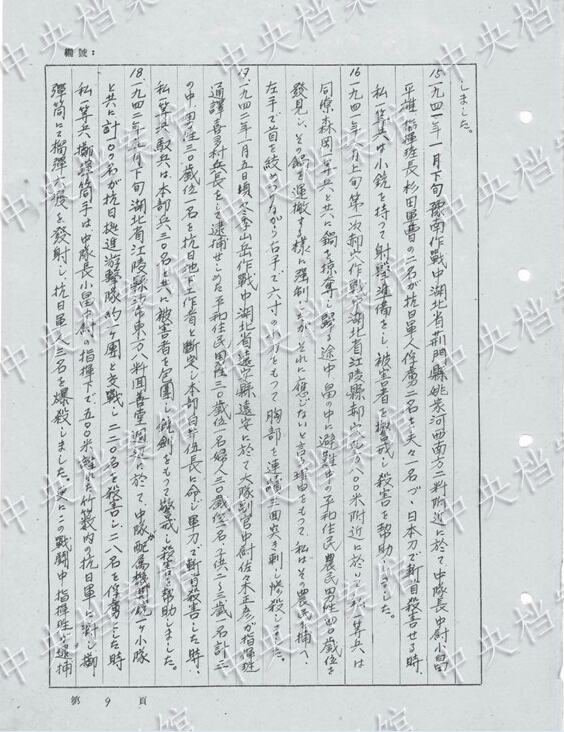 編號：
しました。
15.一九四一年一月下旬豫南作戦中湖北省荊門縣姚家河西南方二粁附近に於て中隊長中尉小畠
平雄、指揮班長杉田軍曹の二名が抗日軍人俘虜二名を夫々一名づゝ日本刀で斬首殺害せる時、
私一等兵は小銃を持って射撃準備をし、被害者を警戒し殺害を幇助しました。
16.一九四一年八月上旬第一次 作戦中湖北省江陵縣 八〇〇米附近に於いて私一等兵は
同僚森岡一等兵と共に鍋を掠奪し帰る途中畠の中に避難せる平和住民農民男性四〇歳位を
発見し、その鍋を運搬する様に強制したがそれに應じないと言ふ理由をもって、私はその農民を捕へ
左手で首を絞めつけながら右手で六寸の をもって胸部を連續三回突き刺し惨殺しました。
17.一九四二年一月五日頃冬季山岳作戦中湖北省遠安縣遠安に於て大隊副官中尉佐々木正彦が指揮班
通譯喜多村兵長をして逮捕せしめた平和住民男性三〇歳位一名婦人三〇歳位一名子供二〜三歳一名計三名
の中男性三〇歳位一名を抗日地下工作者と断定し本部白井伍長に命じ軍刀で斬首殺害した時、
私一等兵 は本部兵二〇名と共に被害者を包圍し銃剣をもって警戒し殺害を幇助しました。
18.一九四二年 月下旬湖北省江陵縣沙市東方八粁圓善堂週辺に於て、中隊が配属機関銃一ヶ小隊
と共に計一〇〇名が抗日挺進游撃隊約一ヶ團と交戦し二二〇名を殺害し二八名を俘虜とした時
私一等兵擲弾筒手は中隊長小畠中尉の指揮下で五〇〇米離れた竹薮内の抗日軍に対し擲
弾筒にて榴弾六 を発射し、抗日軍人三名を爆殺しました。更にこの戦闘中指揮班が逮捕
第 9 頁
中央档案馆